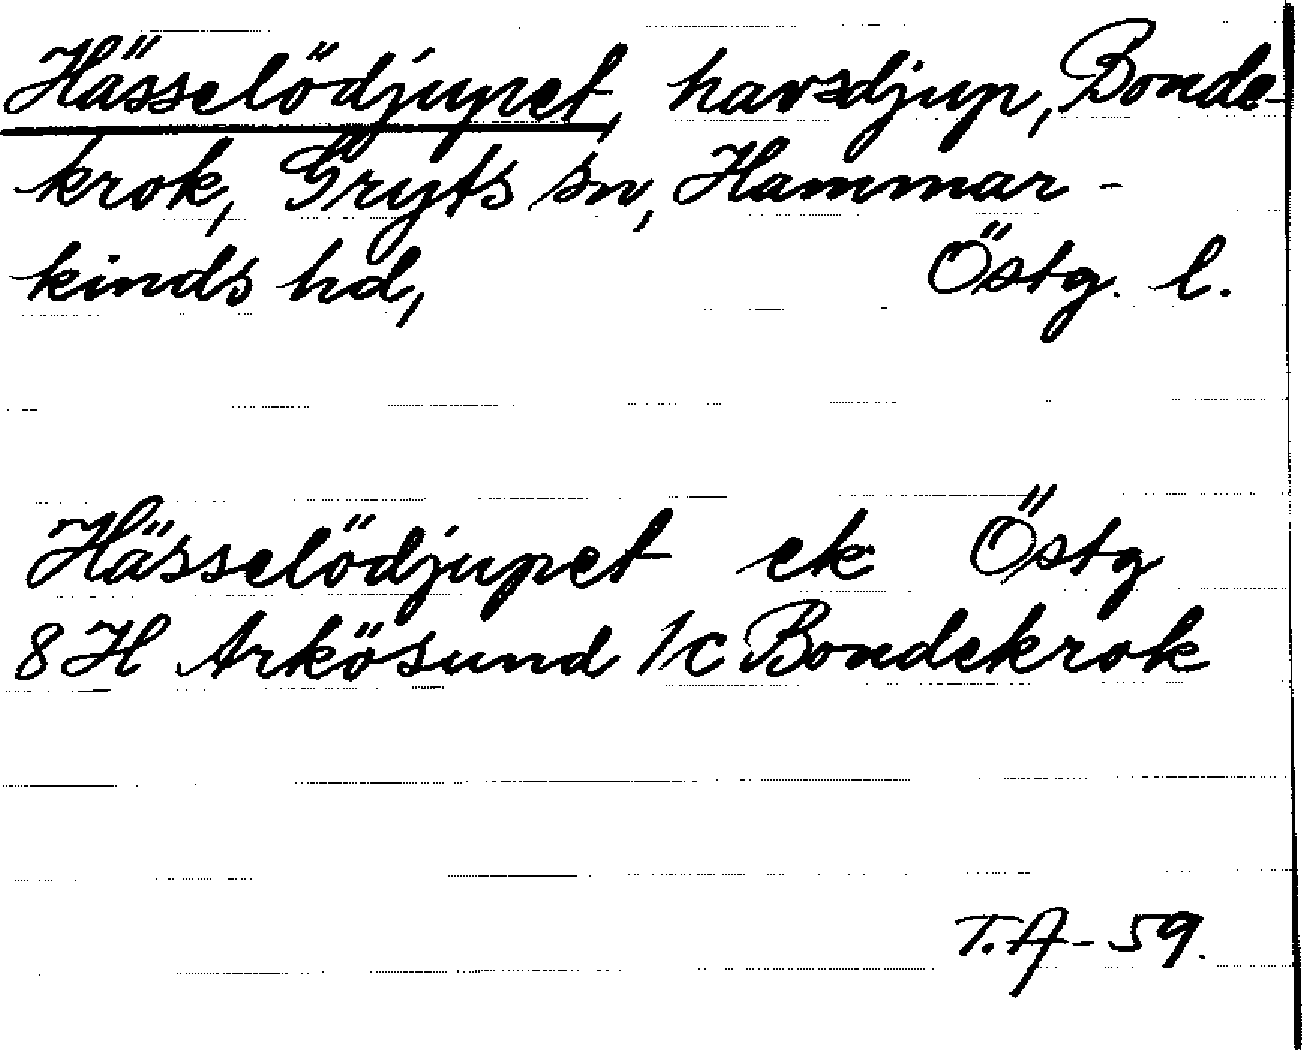 Hässelödjupet, havsdjup, Bonde-
krok, Gryts sn, Hammar-
kinds hd, Östg. l.
Hässelödjupet ek Östg
8H Arkösund 1c Bondekrok
T.A-59.